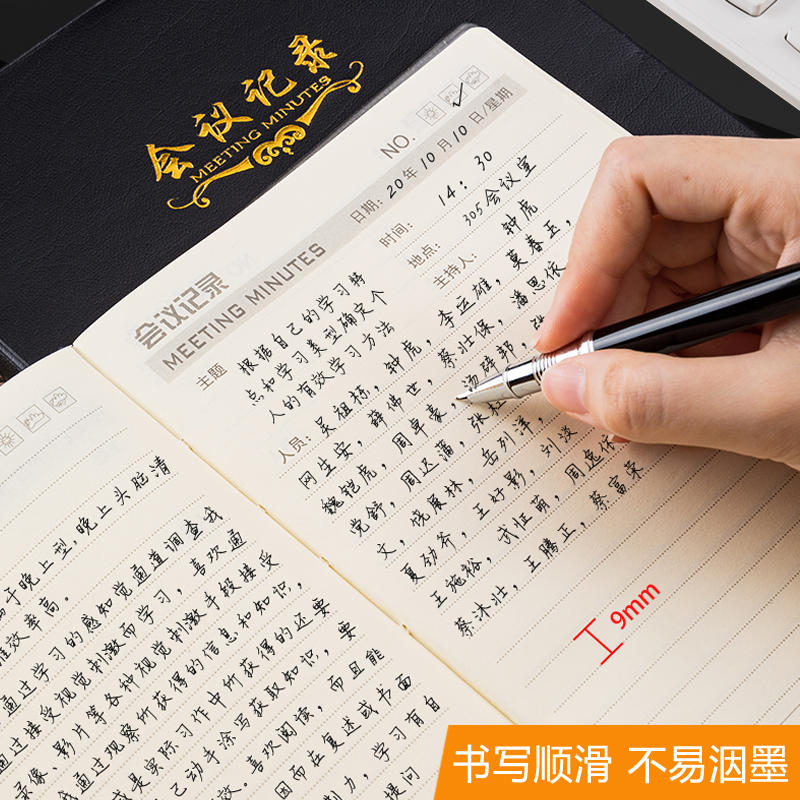 会议记录
MEETING MINUTES
NO.
日期：20年10月10日/星期
时间： 14：30
地点： 305会议室
主持人： 钟虎
会议记录
MEETING MINUTES
主题 根据自己的学习特
点和学习类型确定个
人的有效学习方法
人员：吴祖栋，钟虎，李运雄，莫春玉，
网生安，薛佛世，蔡壮保，潘思依，
魏铠虎，周卓豪，汤辞邦，张
党舒，周迟藩，张
文，饶展林，岳列洋，
夏劲斧，王好影，刘淡
王施裕，武怔萌，周逸依
蔡沐壮，王腾正，蔡富荣
9mm
于晚上型，晚上头脑清
效率高。
通过学习的感知觉通道调查我
过接受视觉刺激而学习，喜欢通
录像、影片等各种视觉刺激手段接受
通过观察所获得的信息和知识，
或是实际习作中所获得的还要
己动手涂写获取知识，要
效。喜欢阅读，而且能
因而在复述或书面
力，学习有自
提问
书写顺滑 不易洇墨